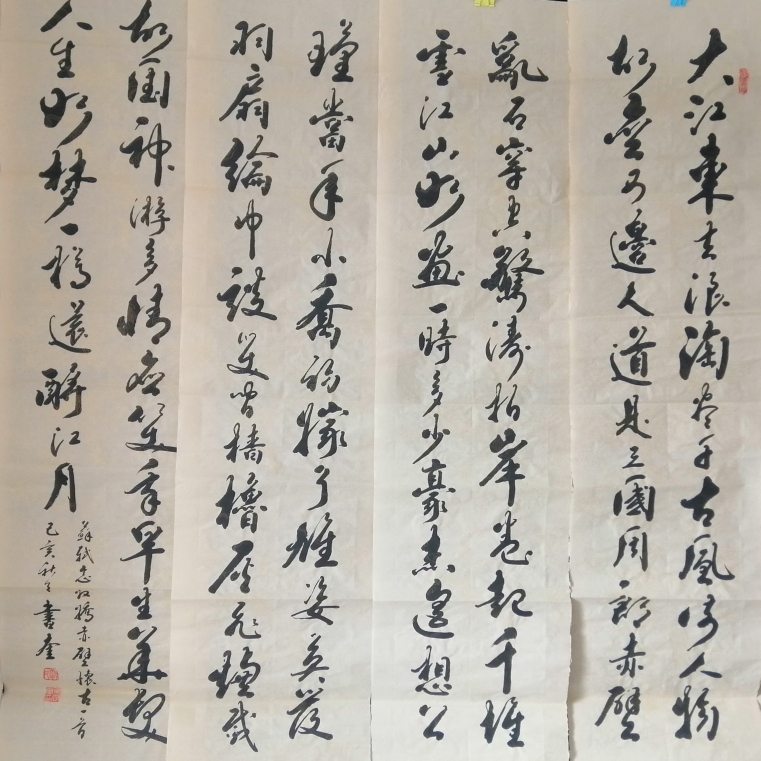 大江東去浪淘盡千古風流人物
故壘西邊人道是三國周郎赤壁
亂石穿空驚濤拍岸卷起千堆
雪江山如畫一時多少豪杰遙想公
瑾當年小喬初嫁了雄姿英發
羽扇綸巾談笑間檣櫓灰飛煙滅
故国神游多情應笑我早生華髮
人生如梦一樽還酹江月
蘇軾念奴嬌赤壁懷古一首
己亥秋書奎